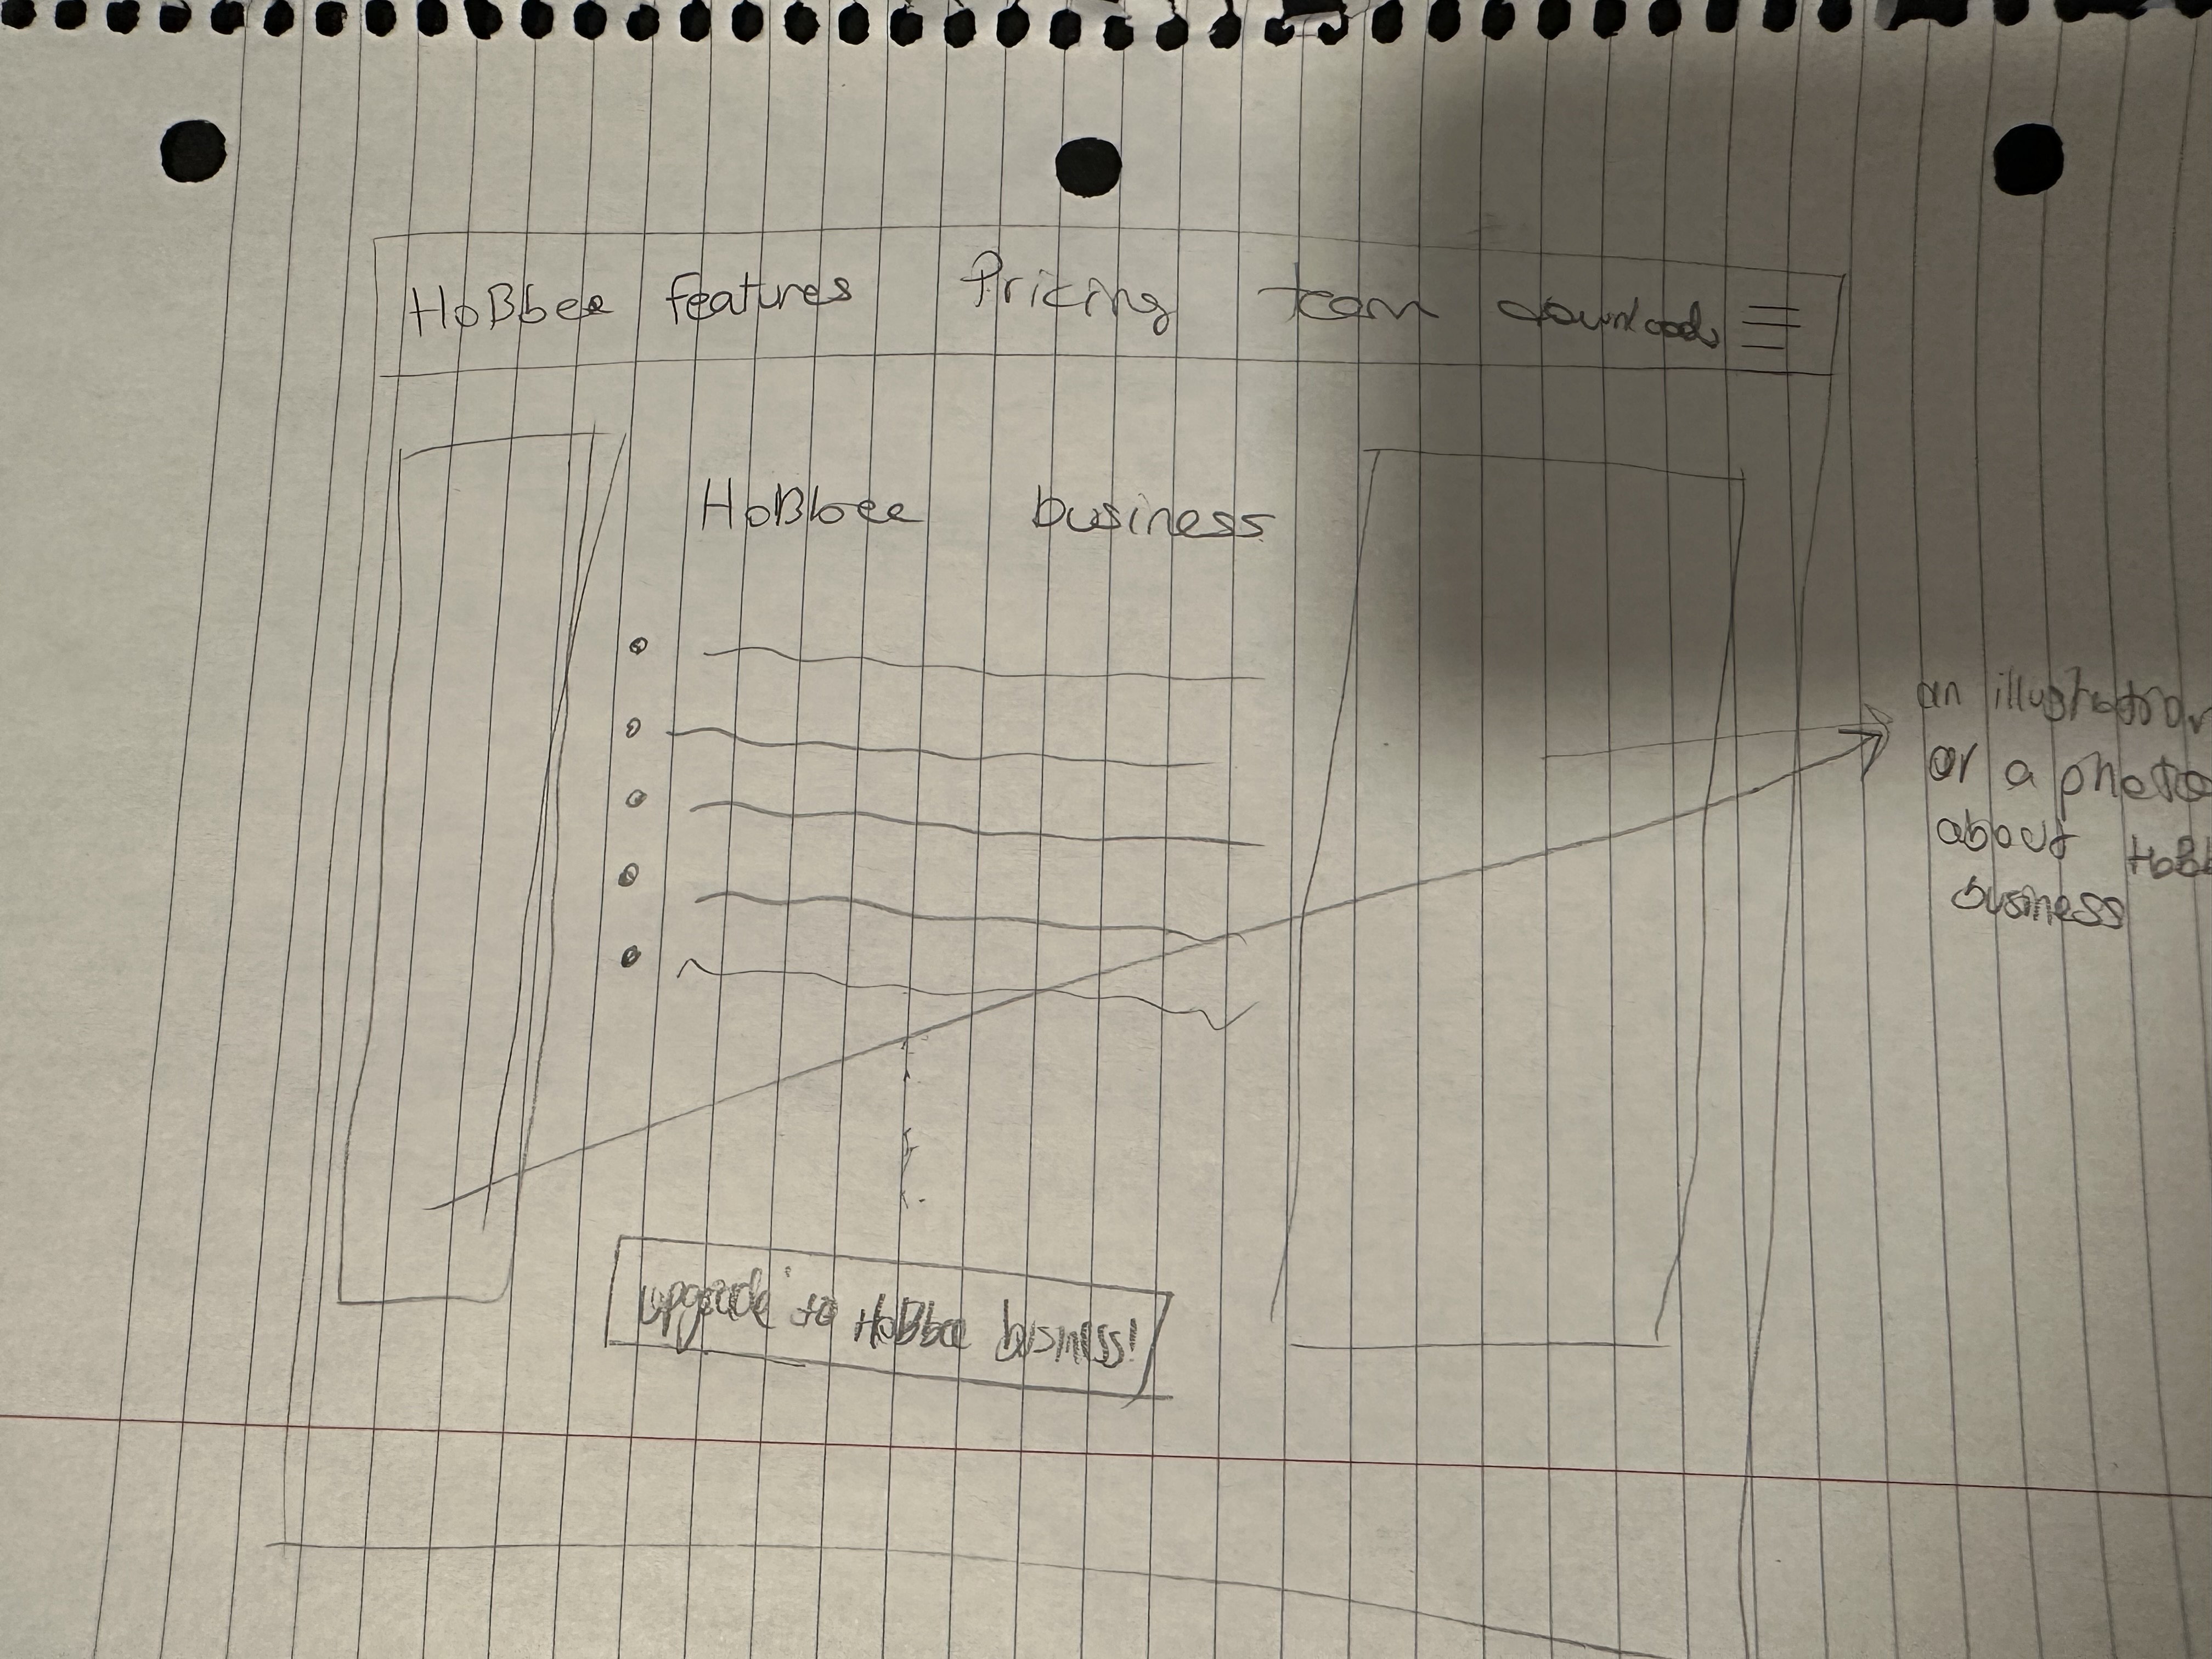 HoBbee features Pricing team download
HoBbee business
Upgrade to HoBbee business!
an illustration
or a photo
about Hobb
business